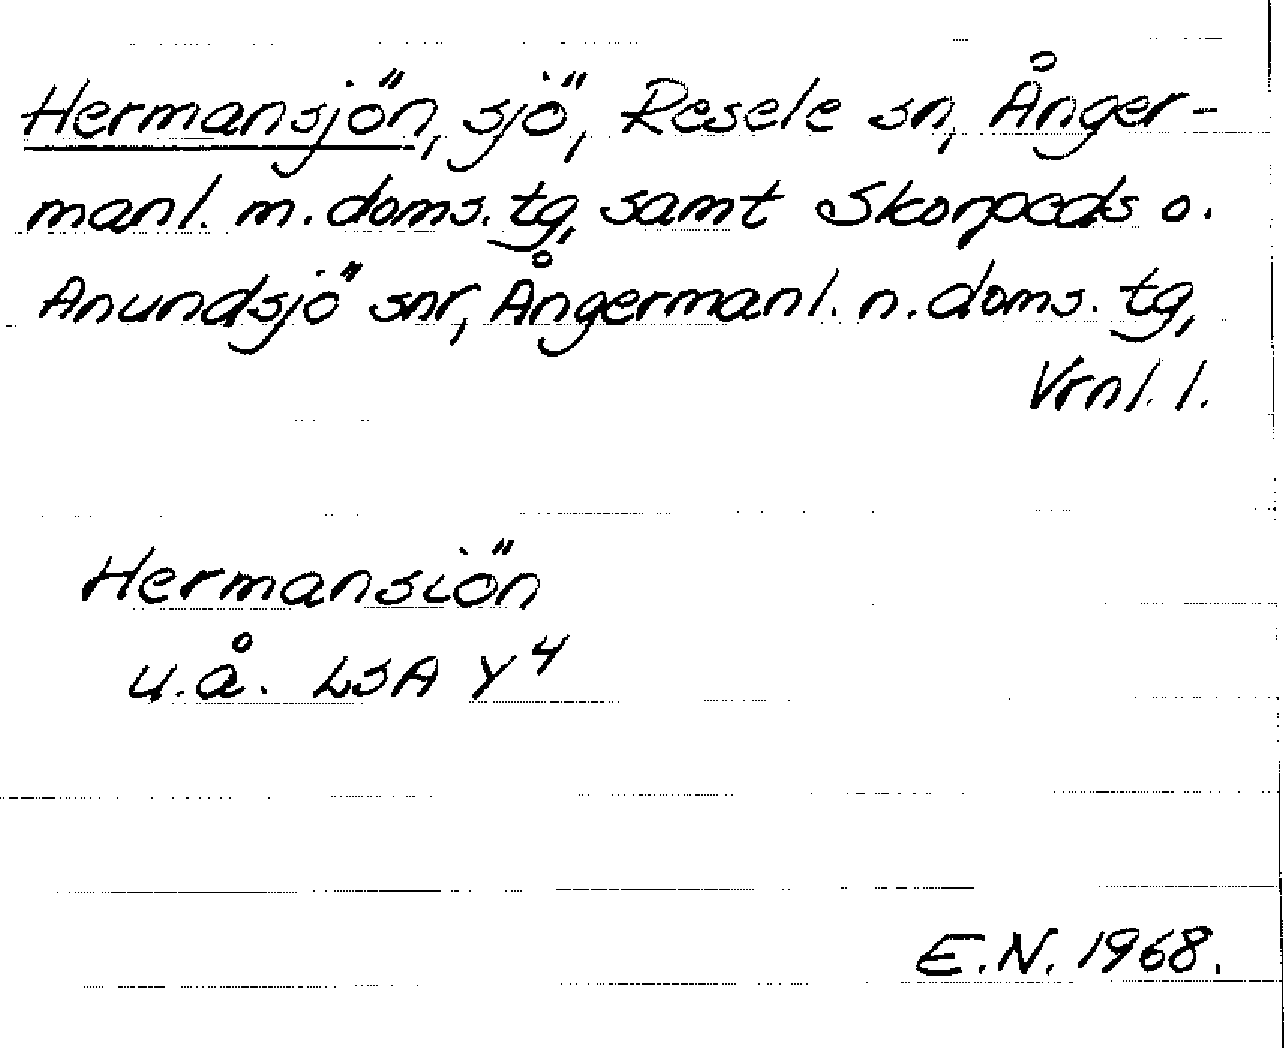 Hermansjön, sjö, Resele sn, Ånger-
manl. m. doms. tg, samt Skorpeds o.
Anundsjö snr, Ångermanl. n. doms. tg,
Vrnl. l.
Hermansiön
u.å. LSA Y4
E.N. 1968.